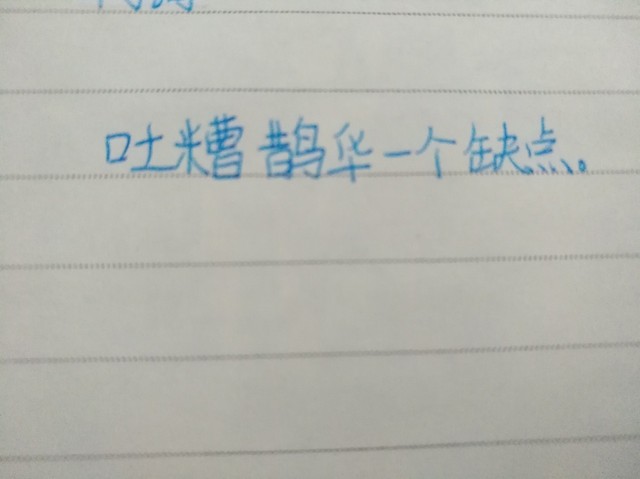 吐糟鹊华一个缺点。